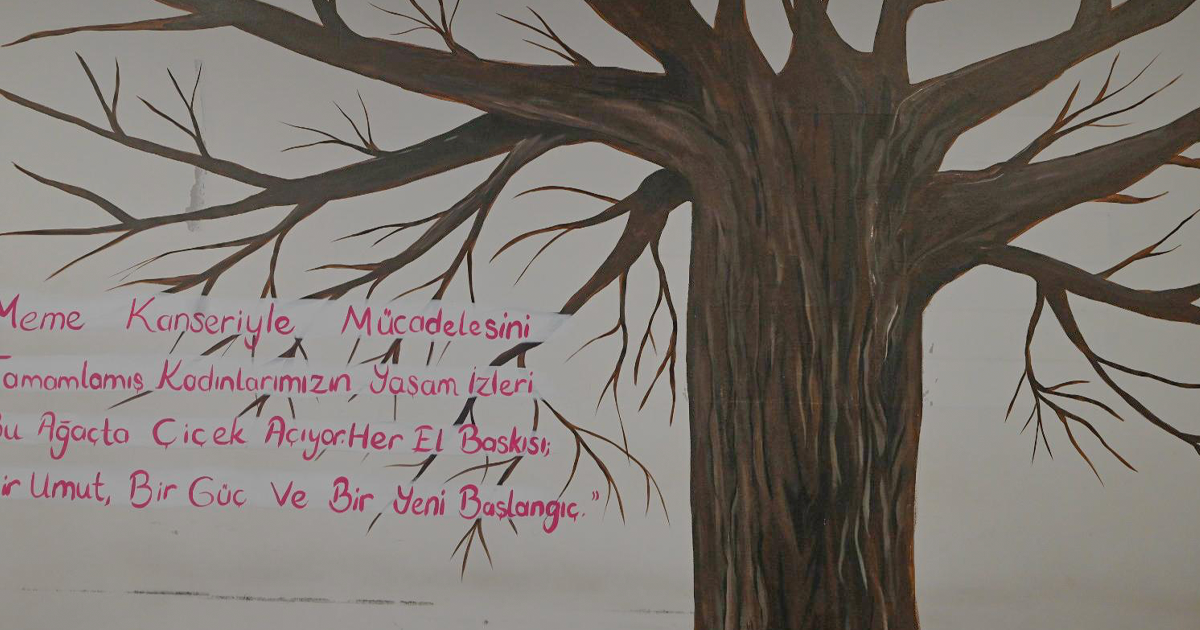 Meme Kanseriyle Mücadelesini
Tamamlamış Kadınlarımızın Yaşam İzleri
Bu Ağaçta Çiçek Açıyor.Her El Baskısı;
Bir Umut, Bir Güç Ve Bir Yeni Başlangıç."